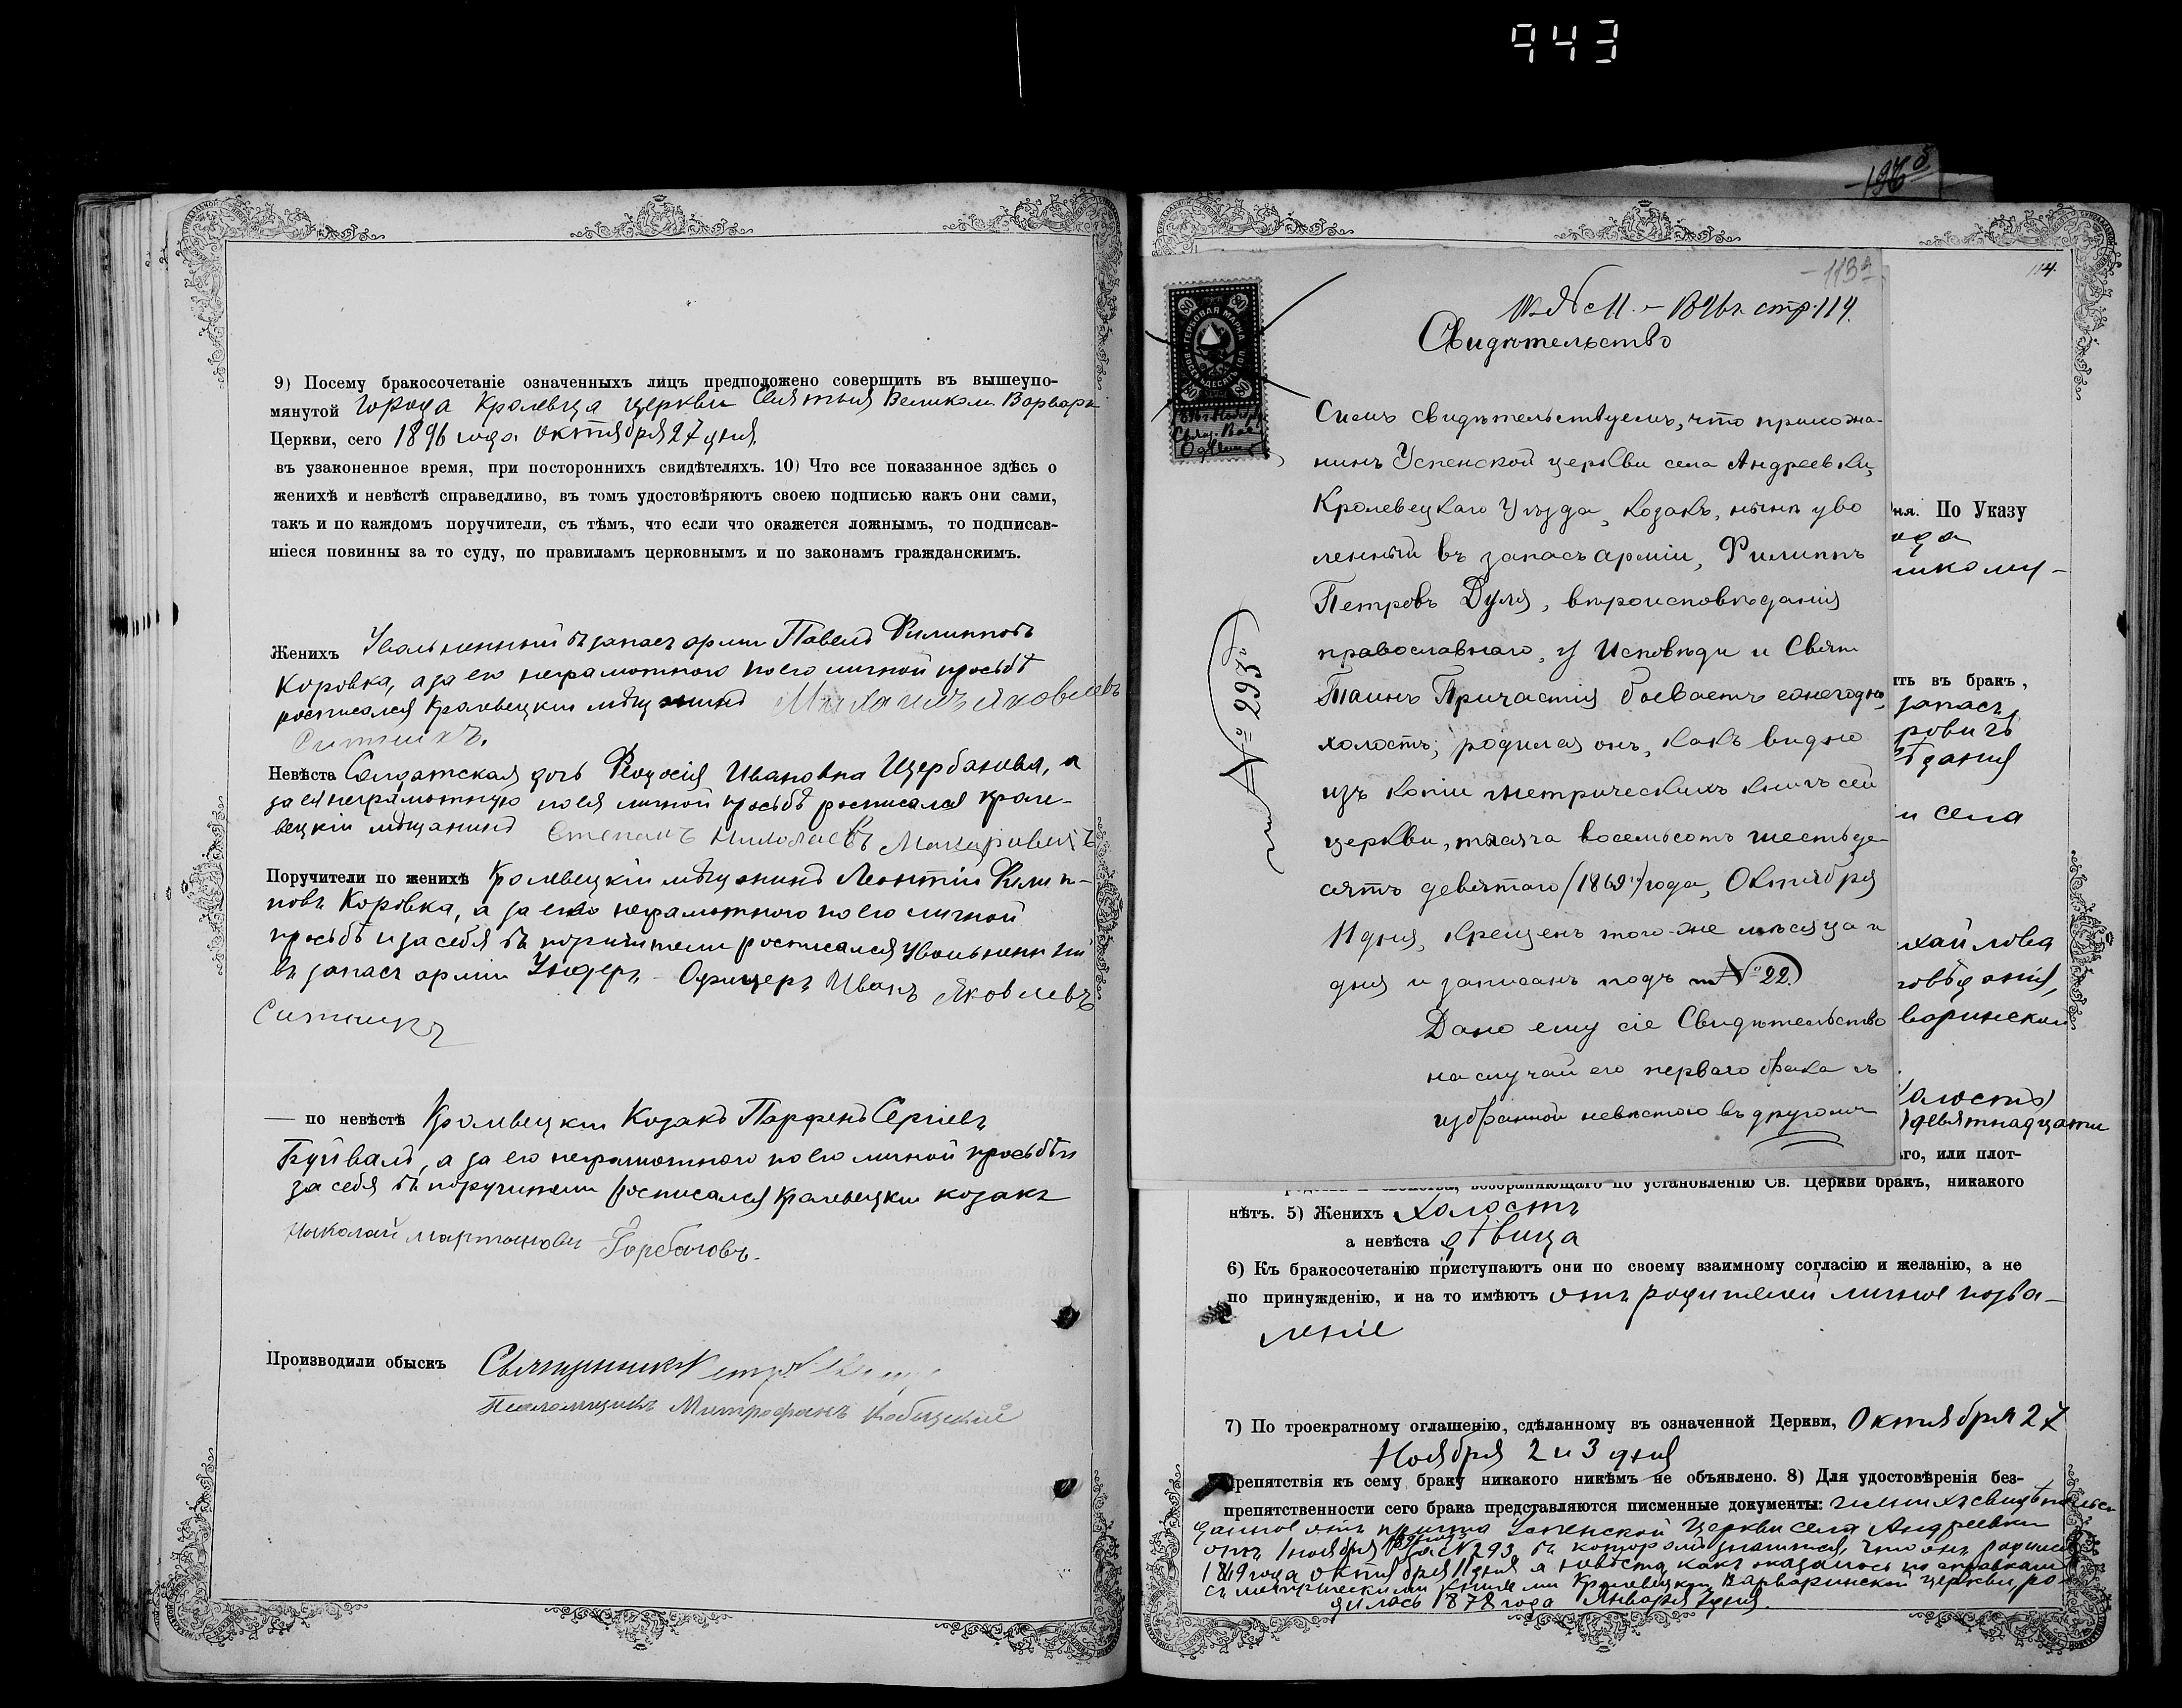 943
9) Посему бракосочетаніе означенныхъ лицъ предположено совершить въ вышеупо-
мянутой города Кролевца церкви Святыя Великом. Варвары
Церкви, сего 1896 года октября 27 дня,
въ узаконенное время, при постороннихъ свидѣтеляхъ. 10) Что все показанное здѣсь о
женихѣ и невѣстѣ справедливо, въ томъ удостовѣряютъ своею подписью какъ они сами,
такъ и по каждомъ поручители, съ тѣмъ, что если что окажется ложнымъ, то подписав-
шіеся повинны за то суду, по правиламъ церковнымъ и по законамъ гражданскимъ.
Женихъ Увольненный въ запасъ арміи Павелъ Филипповъ
Коровка, а за его неграмотного по его личной просьбѣ
росписался Кролевецкій мѣщанинъ Михаилъ Яковлевъ
Ситникъ.
Невѣста Солдатская дочь Феодосія Ивановна Щербакова, а
за ея неграмотную по ея личной просьбѣ росписался Кроле-
вецкій мѣщанинъ Степанъ Николаевъ
Поручители по женихѣ Кролевецкій мѣщанинъ Леонтій Филип-
повъ Коровка, а за его неграмотного по его личной
просьбѣ и за себя въ поручители росписался Увольненный
въ запасъ арміи Ундеръ-Офицеръ Иванъ Яковлевъ
Ситникъ
— по невѣстѣ Кролевецкій Козакъ Парфенъ Сергіевъ
Буйвалъ, а за его неграмотного по его личной просьбѣ и
за себя въ поручители росписался Кролевецкій козакъ
Николай Мартиновъ Горбачовъ.
Производили обыскъ Священникъ
Псаломщикъ Митрофанъ
196 б
114.
113а
къ № 11. – 1896г. стр. 114.
Свидѣтельство
ГЕРБОВАЯ МАРКА
ВОСЕМЬДЕСЯТЪ КОП.
80
Симъ свидѣтельствуемъ, что прихожа-
нинъ Успенской церкви села Андреевки,
Кролевецкаго Уѣзда, козакъ, нынѣ уво
ленный въ запасъ арміи, Филиппъ
Петровъ Дуля, вѣроисповѣданія
православнаго, у Исповѣди и Свят.
Таинъ Причастія бываетъ ежегодно,
холостъ; родился онъ, какъ видно
изъ копіи метрическихъ книгъ сей
церкви, тысяча восемьсотъ шестьде-
сятъ девятаго /1869го/ года, Октября
11 дня, крещенъ того-же мѣсяца и
дня и записанъ подъ № 22.
Дано ему сіе Свидѣтельство
на случай его перваго брака съ
избранной невѣстою въ другомъ
№ 293й
ня. По Указу
ода
шкому-
ить въ бракъ,
запасъ
ровичъ
ѣданія
и села
хайлова
овѣданія,
варинской
девятнадцати
го, или плот-
возбраняющаго по установленію Св. Церкви бракъ, никакого
нѣтъ. 5) Женихъ холостъ
а невѣста дѣвица
6) Къ бракосочетанію приступаютъ они по своему взаимному согласію и желанію, а не
по принужденію, и на то имѣютъ отъ родителей личное позво-
леніе
7) По троекратному оглашенію, сдѣланному въ означенной Церкви, Октября 27
Ноября 2 и 3 дня
препятствія къ сему браку никакого никѣмъ не объявлено. 8) Для удостовѣренія без-
препятственности сего брака представляются писменные документы:
данное отъ причта Успенской Церкви села Андреевки
отъ 1 ноября за № 293, въ которомъ значится, что онъ родился
1869 года октября 11 дня а невѣста, какъ оказалось по справкамъ
съ метрическими книгами Кролевецкой Варваринской церкви, ро-
дилась 1878 года Января 7 дня.